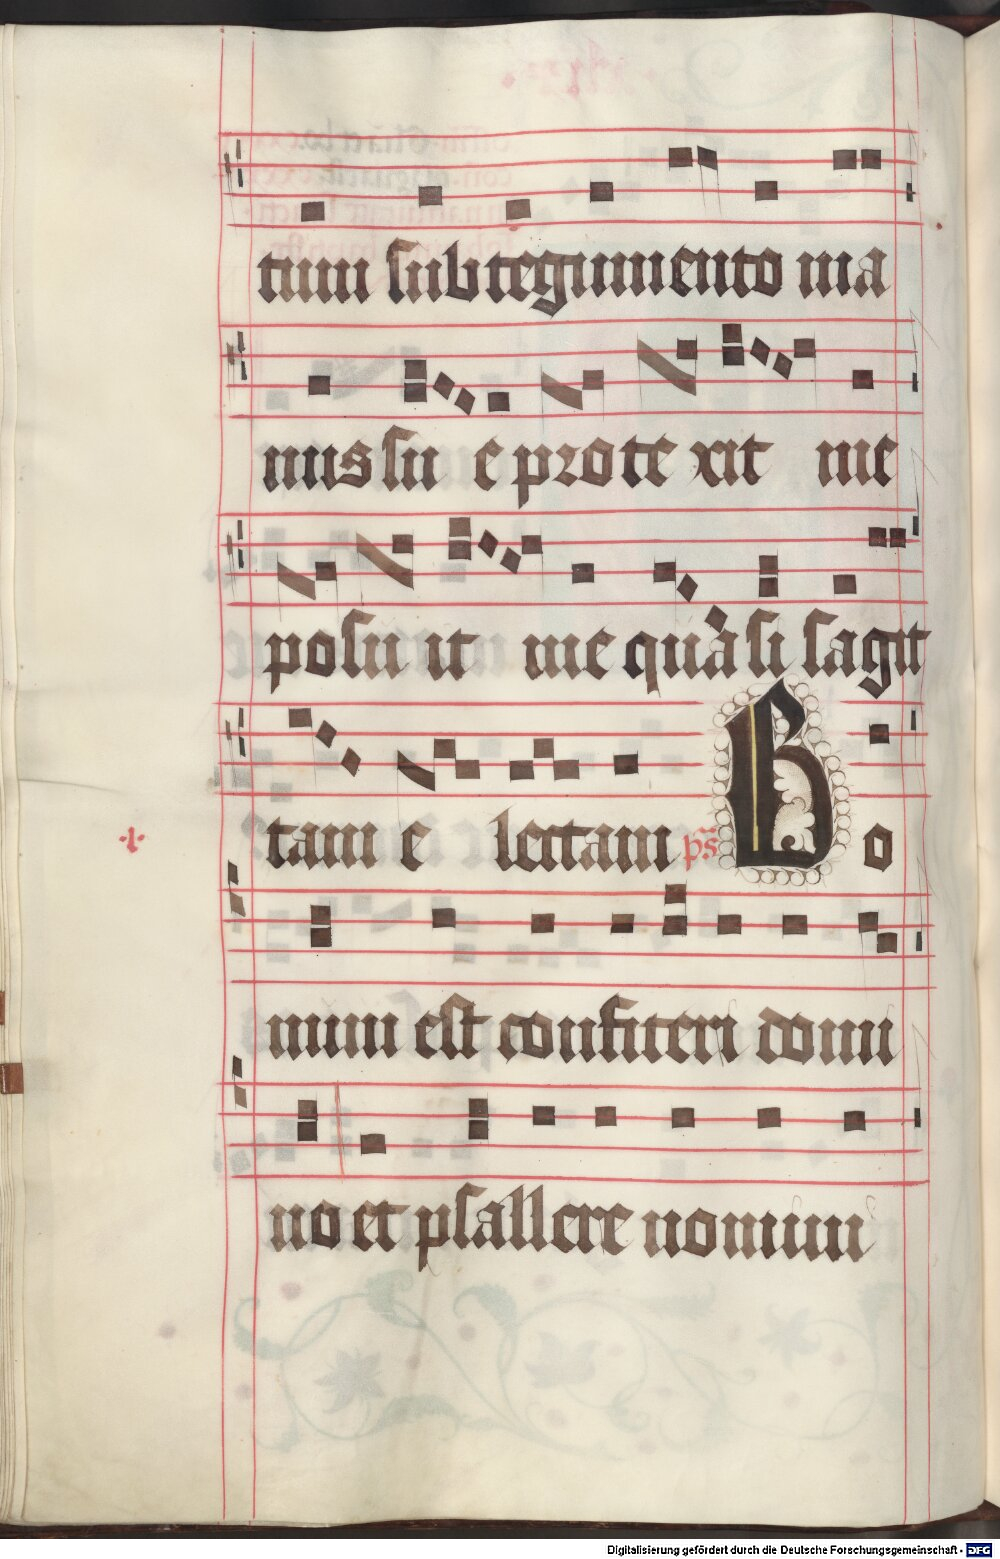 tum sub tegumento ma
nus su e prote xit me
posu it me quasi sagit
tam e lectam ps Bo
num est confiteri domi
no et psallere nomini
Digitalisierung gefördert durch die Deutsche Forschungsgemeinschaft - DFG